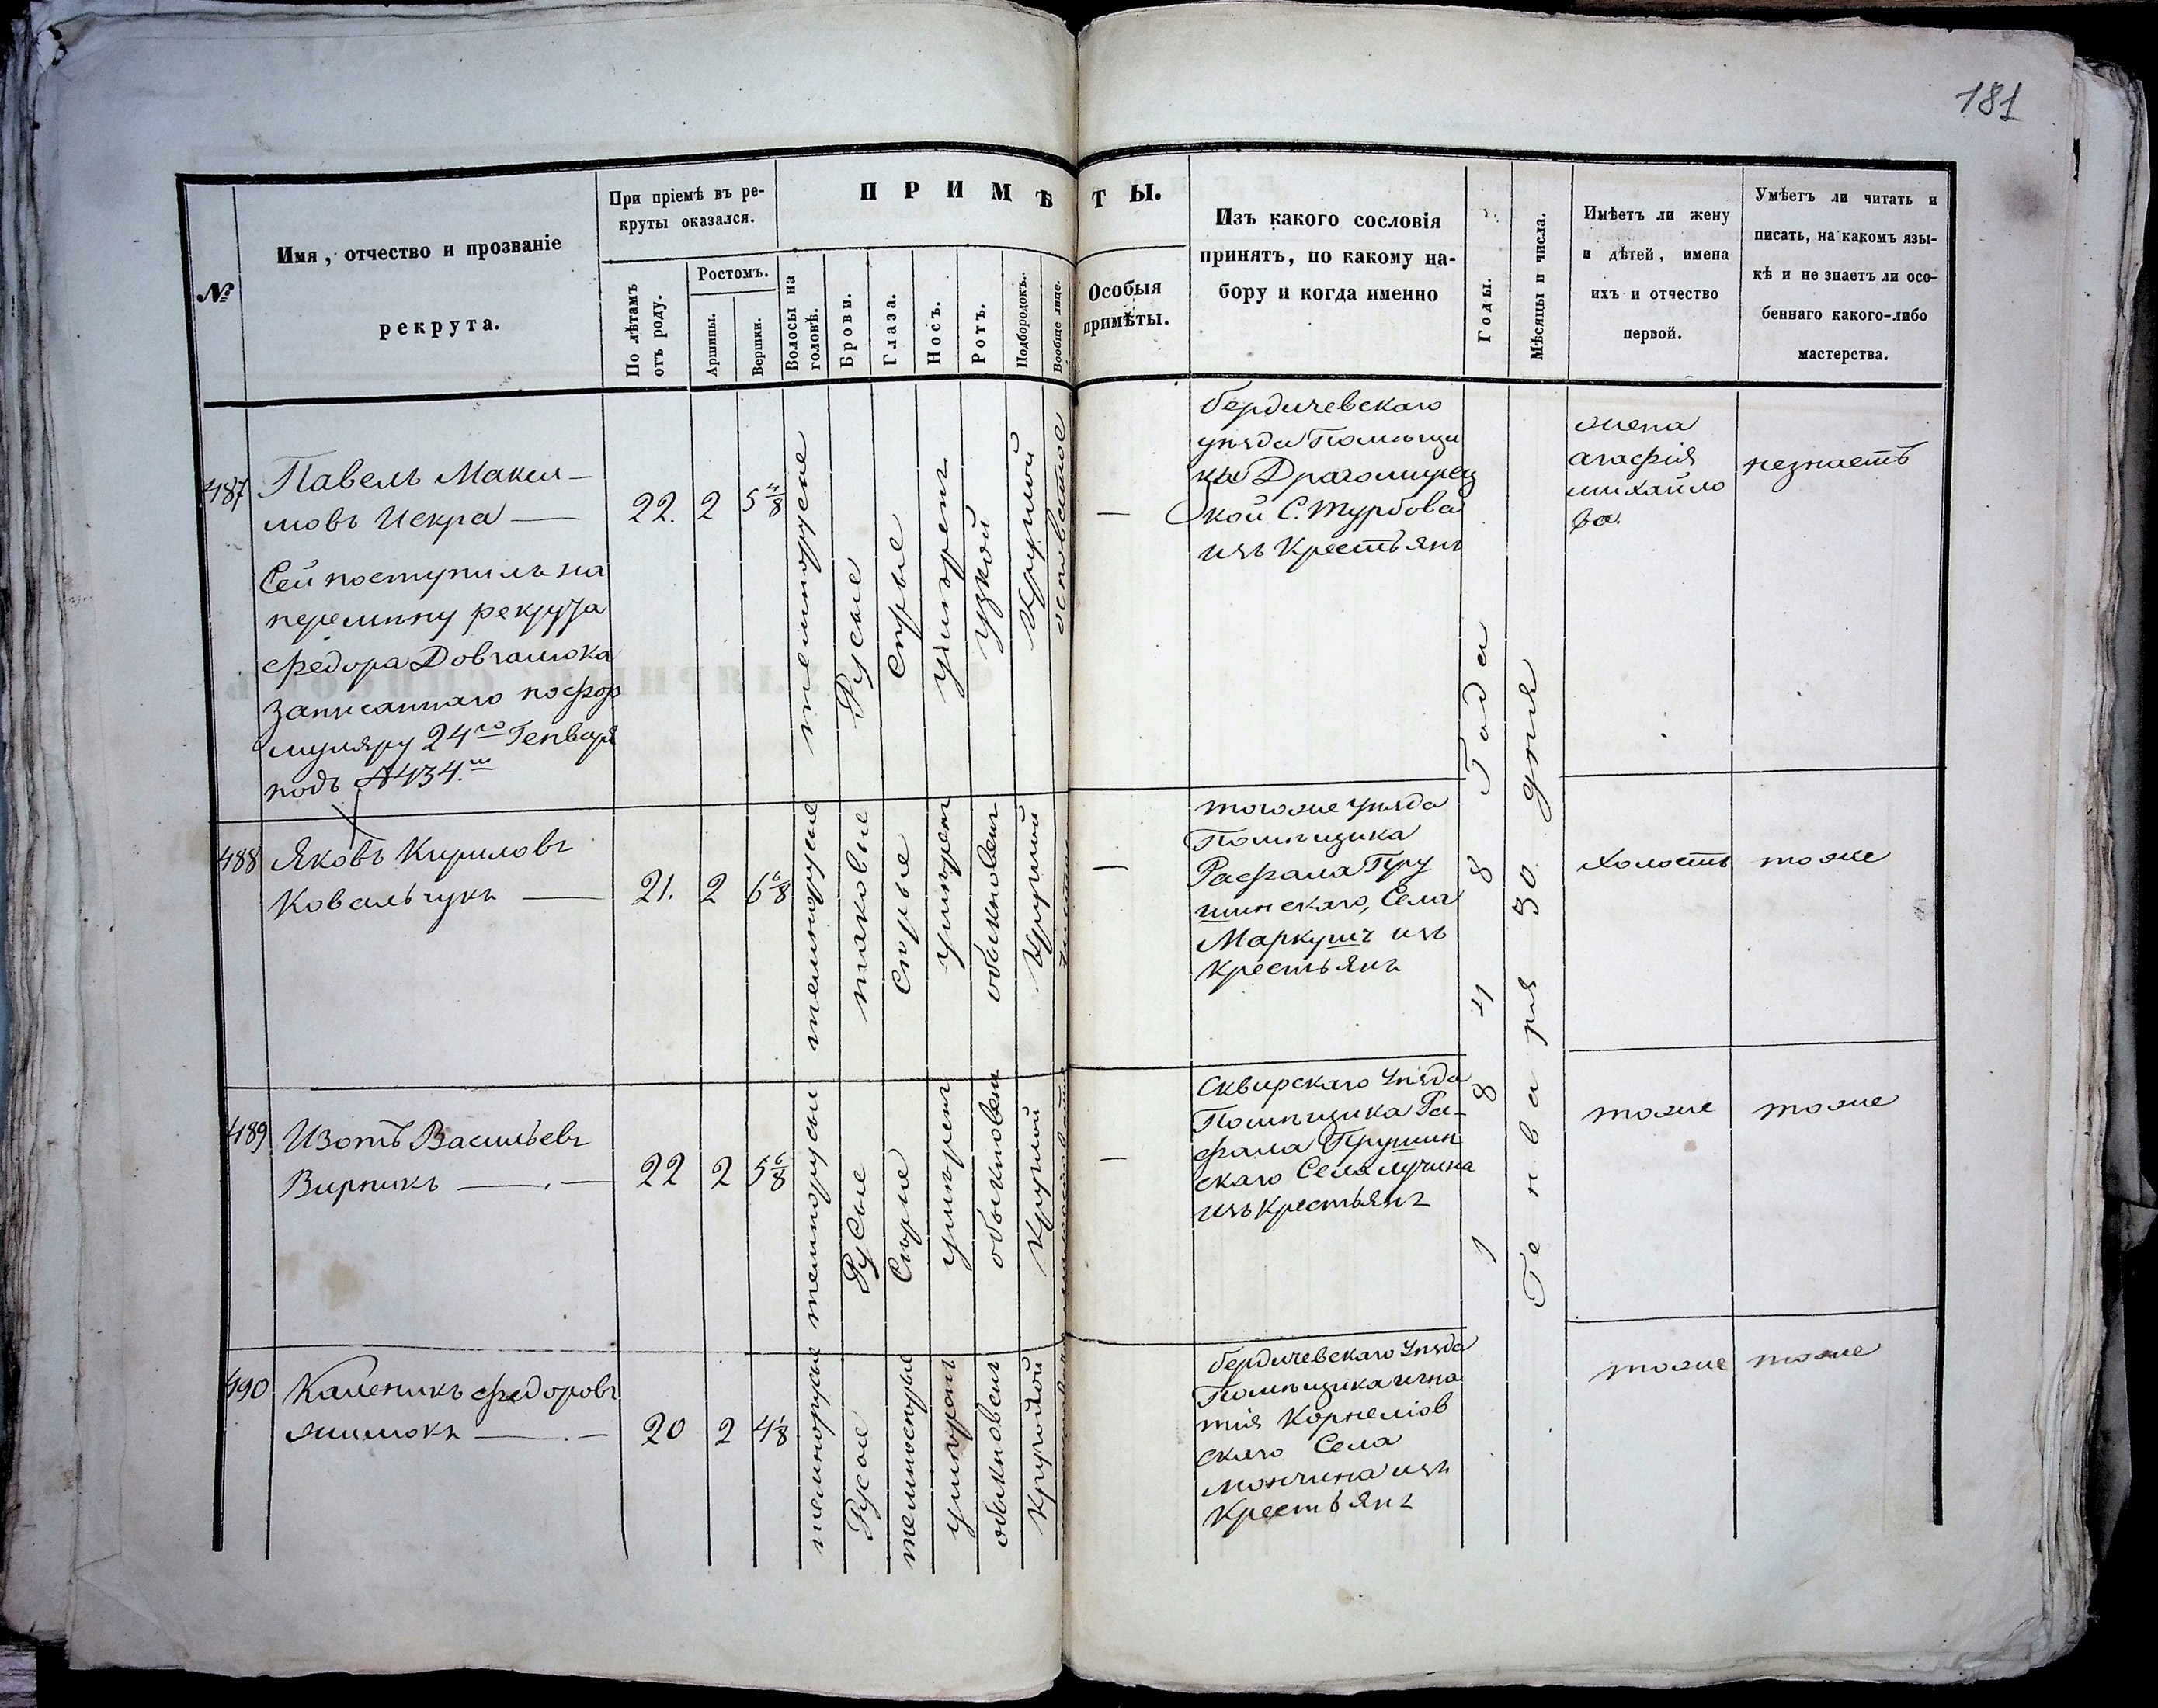 181
№
Имя, отчество и прозваніе
рекрута.
При пріемѣ въ ре-
круты оказался.
По лѣтамъ
отъ роду.
Ростомъ.
Аршины.
Вершки.
ПРИМѢТЫ.
Волосы на
головѣ.
Брови.
Глаза.
Носъ.
Ротъ.
Подбородокъ.
Вообще лице.
Особыя
примѣты.
Изъ какого сословія
принятъ, по какому на-
бору и когда именно
Годы.
Мѣсяцы и числа.
Имѣетъ ли жену
и дѣтей, имена
ихъ и отчество
первой.
Умѣетъ ли читать и
писать, на какомъ язы-
кѣ и не знаетъ ли осо-
беннаго какого-либо
мастерства.
487
Павелъ Макси-
мовъ Искра —
Сей поступилъ на
перемѣну рекрута
Федора Довгалюка
записаннаго по фор
муляру 24го Генваря
подъ №434.мъ
22.
2
5 4/8
темнорусые
Русые
Сѣрые
умѣренъ
узкой
Круглой
осповатое
—
бердичевскаго
уѣзда Помѣщи
ка Драгомирец
кой С. Турбова
изъ Крестьянъ
жена
агафія
михайло
ва.
незнаетъ
488
Яковъ Кириловъ
Ковальчукъ —
21.
2
6 6/8
темнорусые
таковые
Сѣрые
умѣренъ
обыкновенъ
Круглой
—
тогоже уѣзда
Помѣщика
Рафала Пру
шинскаго, Села
Маркушъ изъ
крестьянъ
Холостъ
тоже
489
Изотъ Васильевъ
Вирникъ —
22
2
5 6/8
темнорусые
Русые
Сѣрые
умѣренъ
обыкновенъ
Круглой
—
Сквирскаго уѣзда
Помѣщика Ра-
фала Прушин
скаго Села лучина
изъ Крестьянъ
тоже
тоже
490
Каленикъ Федоровъ
20
2
4 1/8
темнорусые
Русые
темносѣрые
умѣренъ
обыкновенъ
Круглой
бердичевскаго уѣзда
Помѣщика игна
тія Корнеліов
скаго Села
мончина изъ
Крестьянъ
тоже
тоже
1848 Года
Генваря 30 дня